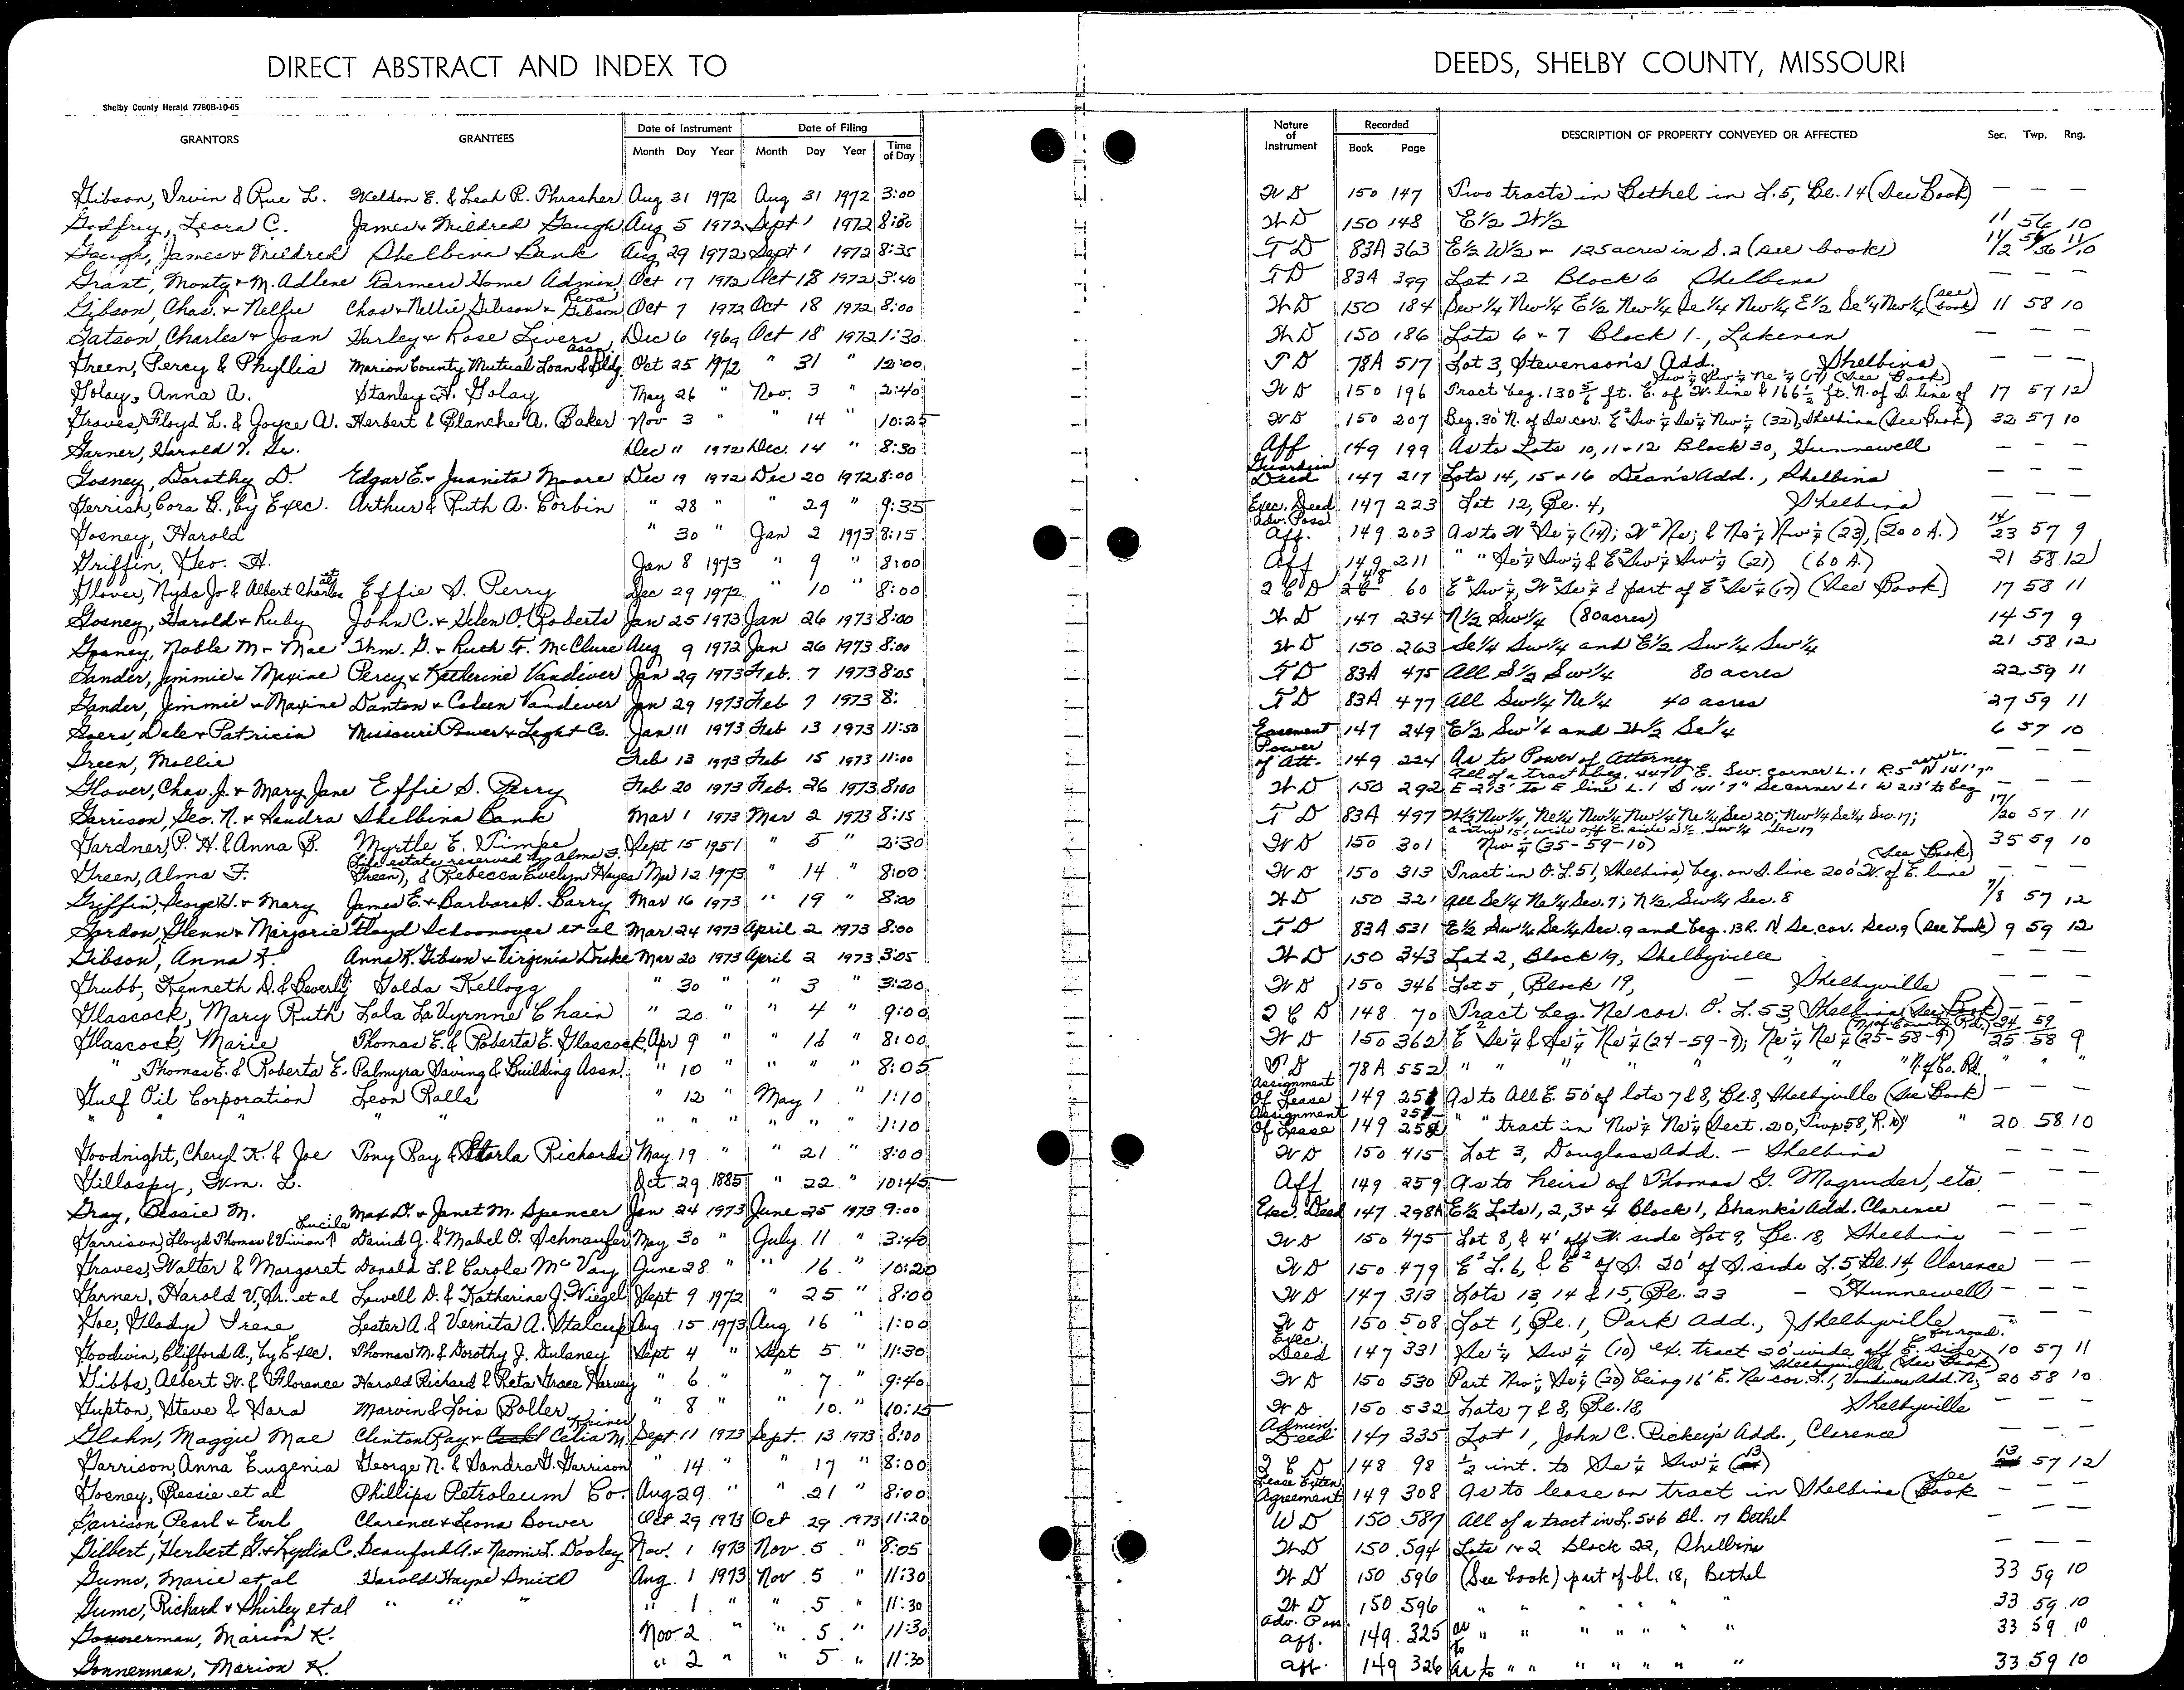 DIRECT ABSTRACT AND INDEX TO DEEDS, SHELBY COUNTY, MISSOURI
Shelby County Herald 7780B-10-65
GRANTORS GRANTEES Date of Instrument Date of Filing Time of Day Nature of Instrument Recorded DESCRIPTION OF PROPERTY CONVEYED OR AFFECTED Sec. Twp. Rng.
Month Day Year Month Day Year Book Page
Gibson, Irvin & Rue L. Weldon E. & Leah R. Thrasher Aug 31 1972 Aug 31 1972 3:00 WD 150 147 Two tracts in Bethel in L.5, Bl. 14 (See Book) — — —
Godfrey, Leora C. James & Mildred Gough Aug 5 1972 Sept 1 1972 8:30 WD 150 148 E½ W½ 11 56 10
Gough, James & Mildred Shelbina Bank Aug 29 1972 Sept 1 1972 8:35 TD 83A 363 E½ W½ & 125 acres in S.2 (see book) 11/2 56/56 11/10
Grant, Monty & M. Adlene Farmers Home Admin. Oct 17 1972 Oct 18 1972 3:40 TD 83A 399 Lot 12 Block 6 Shelbina — — —
Gibson, Chas. & Nellie Chas & Nellie Gibson & Reva Gibson Oct 7 1972 Oct 18 1972 8:00 WD 150 184 Sw¼ Nw¼ E½ Nw¼ Se¼ Nw¼ E½ Se¼ Nw¼ (see book) 11 58 10
Gatson, Charles & Joan Harley & Rose Livers Dec 6 1969 Oct 18 1972 1:30 WD 150 186 Lots 6 & 7 Block 1, Lakenan — — —
Green, Percy & Phyllis Marion County Mutual Loan & Bldg. Assn. Oct 25 1972 " 31 " 10:00 TD 78A 517 Lot 3, Stevenson's Add. Shelbina — — —
Golay, Anna A. Stanley H. Golay May 26 " Nov. 3 " 2:40 WD 150 196 Tract beg. 130 5/6 ft. E. of W. line & 166½ ft. N. of S. line of Sw¼ Sw¼ Ne¼ (17) (See Book) 17 57 12
Graves, Floyd L. & Joyce A. Herbert & Blanche A. Baker Nov 3 " " 14 " 10:25 WD 150 207 Beg. 30' N. of Se cor. E² Sw¼ Se¼ Nw¼ (32), Shelbina (See Book) 32 57 10
Garner, Harold V. Sr. Dec 11 1972 Dec. 14 " 8:30 Aff 149 199 As to Lots 10, 11 & 12 Block 30, Hunnewell — — —
Gosney, Dorothy D. Edgar E. & Juanita Moore Dec 19 1972 Dec 20 1972 8:00 Guardian Deed 147 217 Lots 14, 15 & 16 Dean's Add., Shelbina — — —
Gerrish, Cora B., by Exec. Arthur & Ruth A. Corbin " 28 " " 29 " 9:35 Exec. Deed 147 223 Lot 12, Bl. 4, Shelbina — — —
Gosney, Harold " 30 " Jan 2 1973 8:15 Adv. Poss. Aff. 149 203 As to W² Se¼ (14); W² Ne; & Ne¼ Nw¼ (23), (200 A.) 14/23 57 9
Griffin, Geo. H. Jan 8 1973 " 9 " 8:00 Aff 149 211 " " Se¼ Sw¼ & E² Sw¼ Sw¼ (21) (60 A.) 21 58 12
Glover, Nyda Jo & Albert Charles et al Effie S. Perry Dec 29 1972 " 10 " 8:00 Q C D 148 60 E² Sw¼, W² Se¼ & part of E² Se¼ (17) (See Book) 17 58 11
Gosney, Harold & Ruby John C. & Helen O. Roberts Jan 25 1973 Jan 26 1973 8:00 WD 147 234 N½ Sw¼ (80 acres) 14 57 9
Gosney, Noble M & Mae Thm. G. & Ruth F. McClure Aug 9 1972 Jan 26 1973 8:00 WD 150 263 Se¼ Sw¼ and E½ Sw¼ Sw¼ 21 58 12
Gander, Jimmie & Maxine Percy & Katherine Vandiver Jan 29 1973 Feb. 7 1973 8:05 TD 83A 475 All S½ Sw¼ 80 acres 22 59 11
Gander, Jimmie & Maxine Danton & Coleen Vandiver Jan 29 1973 Feb 7 1973 8: TD 83A 477 All Sw¼ Ne¼ 40 acres 27 59 11
Goers, Dale & Patricia Missouri Power & Light Co. Jan 11 1973 Feb 13 1973 11:50 Easement 147 249 E½ Sw¼ and W½ Se¼ 6 57 10
Green, Mollie Feb 13 1973 Feb 15 1973 11:00 Power of Att. 149 224 As to Power of Attorney — — —
Glover, Chas. J. & Mary Jane Effie S. Perry Feb 20 1973 Feb. 26 1973 8:00 WD 150 292 All of a tract beg. 447.0' E. Sw. corner L. 1 R. 5 N 141'7" E 213' to E line L.1 S 141'7" Se corner L1 W 213' to beg — — —
Garrison, Geo. N. & Sandra Shelbina Bank Mar 1 1973 Mar 2 1973 8:15 TD 83A 497 W½ Nw¼, Ne¼ Nw¼, Nw¼ Ne¼ Sec 20; Nw¼ Se¼ Sec. 17; a strip 15' wide off E. side S½ Sw¼ Sec 17 17/20 57 11
Gardner, P. H. & Anna B. Myrtle E. Timpe Sept 15 1951 " 5 " 2:30 WD 150 301 Nw¼ (35-59-10) 35 59 10
Green, Alma F. (Life estate reserved by Alma F. Green), & Rebecca Evelyn Hayes Mar 12 1973 " 14 " 8:00 WD 150 313 Tract in O.L. 51, Shelbina, beg. on S. line 200' W. of E. line (See Book) — — —
Griffin, George H. & Mary James E. & Barbara A. Barry Mar 16 1973 " 19 " 8:00 WD 150 321 All Se¼ Ne¼ Sec. 7; N½ Sw¼ Sec. 8 7/8 57 12
Gordon, Glenn & Marjorie Floyd Schoonover et al Mar 24 1973 April 2 1973 8:00 TD 83A 531 E½ Sw¼ Se¼ Sec. 9 and beg. 13 R. N Se cor. Sec. 9 (see book) 9 59 12
Gibson, Anna K. Anna K. Gibson & Virginia Drake Mar 20 1973 April 2 1973 3:05 WD 150 343 Lot 2, Block 19, Shelbyville — — —
Grubb, Kenneth D. & Beverly Golda Kellogg " 30 " " 3 " 3:20 WD 150 346 Lot 5, Block 19, — Shelbyville — — —
Glascock, Mary Ruth Lola LaVyrnne Chain " 20 " " 4 " 9:00 Q C D 148 70 Tract beg. Ne cor. O. L. 53, Shelbina (See Book) — — —
Glascock, Marie Thomas E. & Roberta E. Glascock Apr 9 " " 16 " 8:00 WD 150 362 E² Se¼ & Se¼ Ne¼ (24-59-9); Ne¼ Ne¼ (25-58-9) (N. of County Rd.) 24 59 25 58 9
" , Thomas E. & Roberta E. Palmyra Saving & Building Assn. " 10 " " " " 8:05 TD 78A 552 " " " " " " N. of Co. Rd. " " "
Gulf Oil Corporation Leon Ralls " 12 " May 1 " 1:10 Assignment Of Lease 149 251 As to All E. 50' of lots 7 & 8, Bl. 8, Shelbyville (See Book) — — —
" " " " " " " " " " " 1:10 Assignment Of Lease 149 251 252 " " tract in Nw¼ Ne¼ (Sect. 20, Twp 58, R. 10) " " 20 58 10
Goodnight, Cheryl K. & Joe Tony Ray & Starla Richards May 19 " " 21 " 8:00 WD 150 415 Lot 3, Douglass Add. — Shelbina — — —
Gillaspy, Wm. L. Oct 29 1885 " 22 " 10:45 Aff 149 259 As to heirs of Thomas G. Magruder, etc. — — —
Gray, Bessie M. Max D. & Janet M. Spencer Jan 24 1973 June 25 1973 9:00 Exec. Deed 147 298A E½ Lots 1, 2, 3 & 4 Block 1, Shanks Add. Clarence — — —
Garrison, Lloyd Thomas & Vivian Lucile David G. & Mabel O. Schnaufer May 30 " July 11 " 3:40 WD 150 475 Lot 8, & 4' off W. side Lot 9, Bl. 18, Shelbina — —
Graves, Walter & Margaret Donald L. & Carole McVay June 28 " " 16 " 10:20 WD 150 479 E² L. 6, & E² of S. 20' of S. side L. 5 Bl. 14, Clarence — —
Garner, Harold V., Sr. et al Lowell D. & Katherine J. Wiegel Sept 9 1972 " 25 " 8:00 WD 147 313 Lots 13, 14 & 15, Bl. 23 — Hunnewell — —
Goe, Gladys Irene Lester A. & Vernita A. Stalcup Aug 15 1973 Aug 16 " 1:00 WD 150 508 Lot 1, Bl. 1, Park Add., Shelbyville — — —
Goodwin, Clifford A., by Exec. Thomas M. & Dorothy J. Dulaney Sept 4 " Sept 5 " 11:30 Exec. Deed 147 331 Se¼ Sw¼ (10) ex. tract 20' wide off E. side for road. 10 57 11
Gibbs, Albert W. & Florence Harold Richard & Reta Grace Harvey " 6 " " 7 " 9:40 WD 150 530 Part Nw¼ Se¼ (20) being 16' E. Ne cor. L. 1, Vandiver Add. N. Shelbyville, (See Book) 20 58 10
Gupton, Steve & Sara Marvin & Lois Boller " 8 " " 10 " 10:15 WD 150 532 Lots 7 & 8, Bl. 18, Shelbyville — — —
Glahn, Maggie Mae Clinton Ray & Celia M. Sept 11 1973 Sept. 13 1973 8:00 Admin. Deed 147 335 Lot 1, John C. Rickey's Add., Clarence — — —
Garrison, Anna Eugenia George N. & Sandra G. Garrison " 14 " " 17 " 8:00 Q C D 148 98 ½ int. to Se¼ Sw¼ (13) 13 57 12
Gosney, Bessie et al Phillips Petroleum Co. Aug 29 " " 21 " 8:00 Lease Exten. Agreement 149 308 As to lease on tract in Shelbina (See Book — — —
Garrison, Pearl & Earl Clarence & Leona Bower Oct 29 1973 Oct 29 1973 11:20 WD 150 587 All of a tract in L. 5 & 6 Bl. 17 Bethel — — —
Gilbert, Herbert G. & Lydia C. Beauford A. & Naomi L. Dooley Nov. 1 1973 Nov. 5 " 8:05 WD 150 594 Lots 1 & 2 Block 22, Shelbina — — —
Gume, Marie et al Harold Wayne Smith Aug. 1 1973 Nov. 5 " 11:30 WD 150 596 (See book) part of bl. 18, Bethel 33 59 10
Gume, Richard & Shirley et al " " " " 1 " " 5 " 11:30 WD 150 596 " " " " " " 33 59 10
Gonnerman, Marion K. Nov. 2 " " 5 " 11:30 Adv. Poss. aff. 149 325 as to " " " " " " 33 59 10
Gonnerman, Marion K. " 2 " " 5 " 11:30 aff. 149 326 as to " " " " " " " 33 59 10